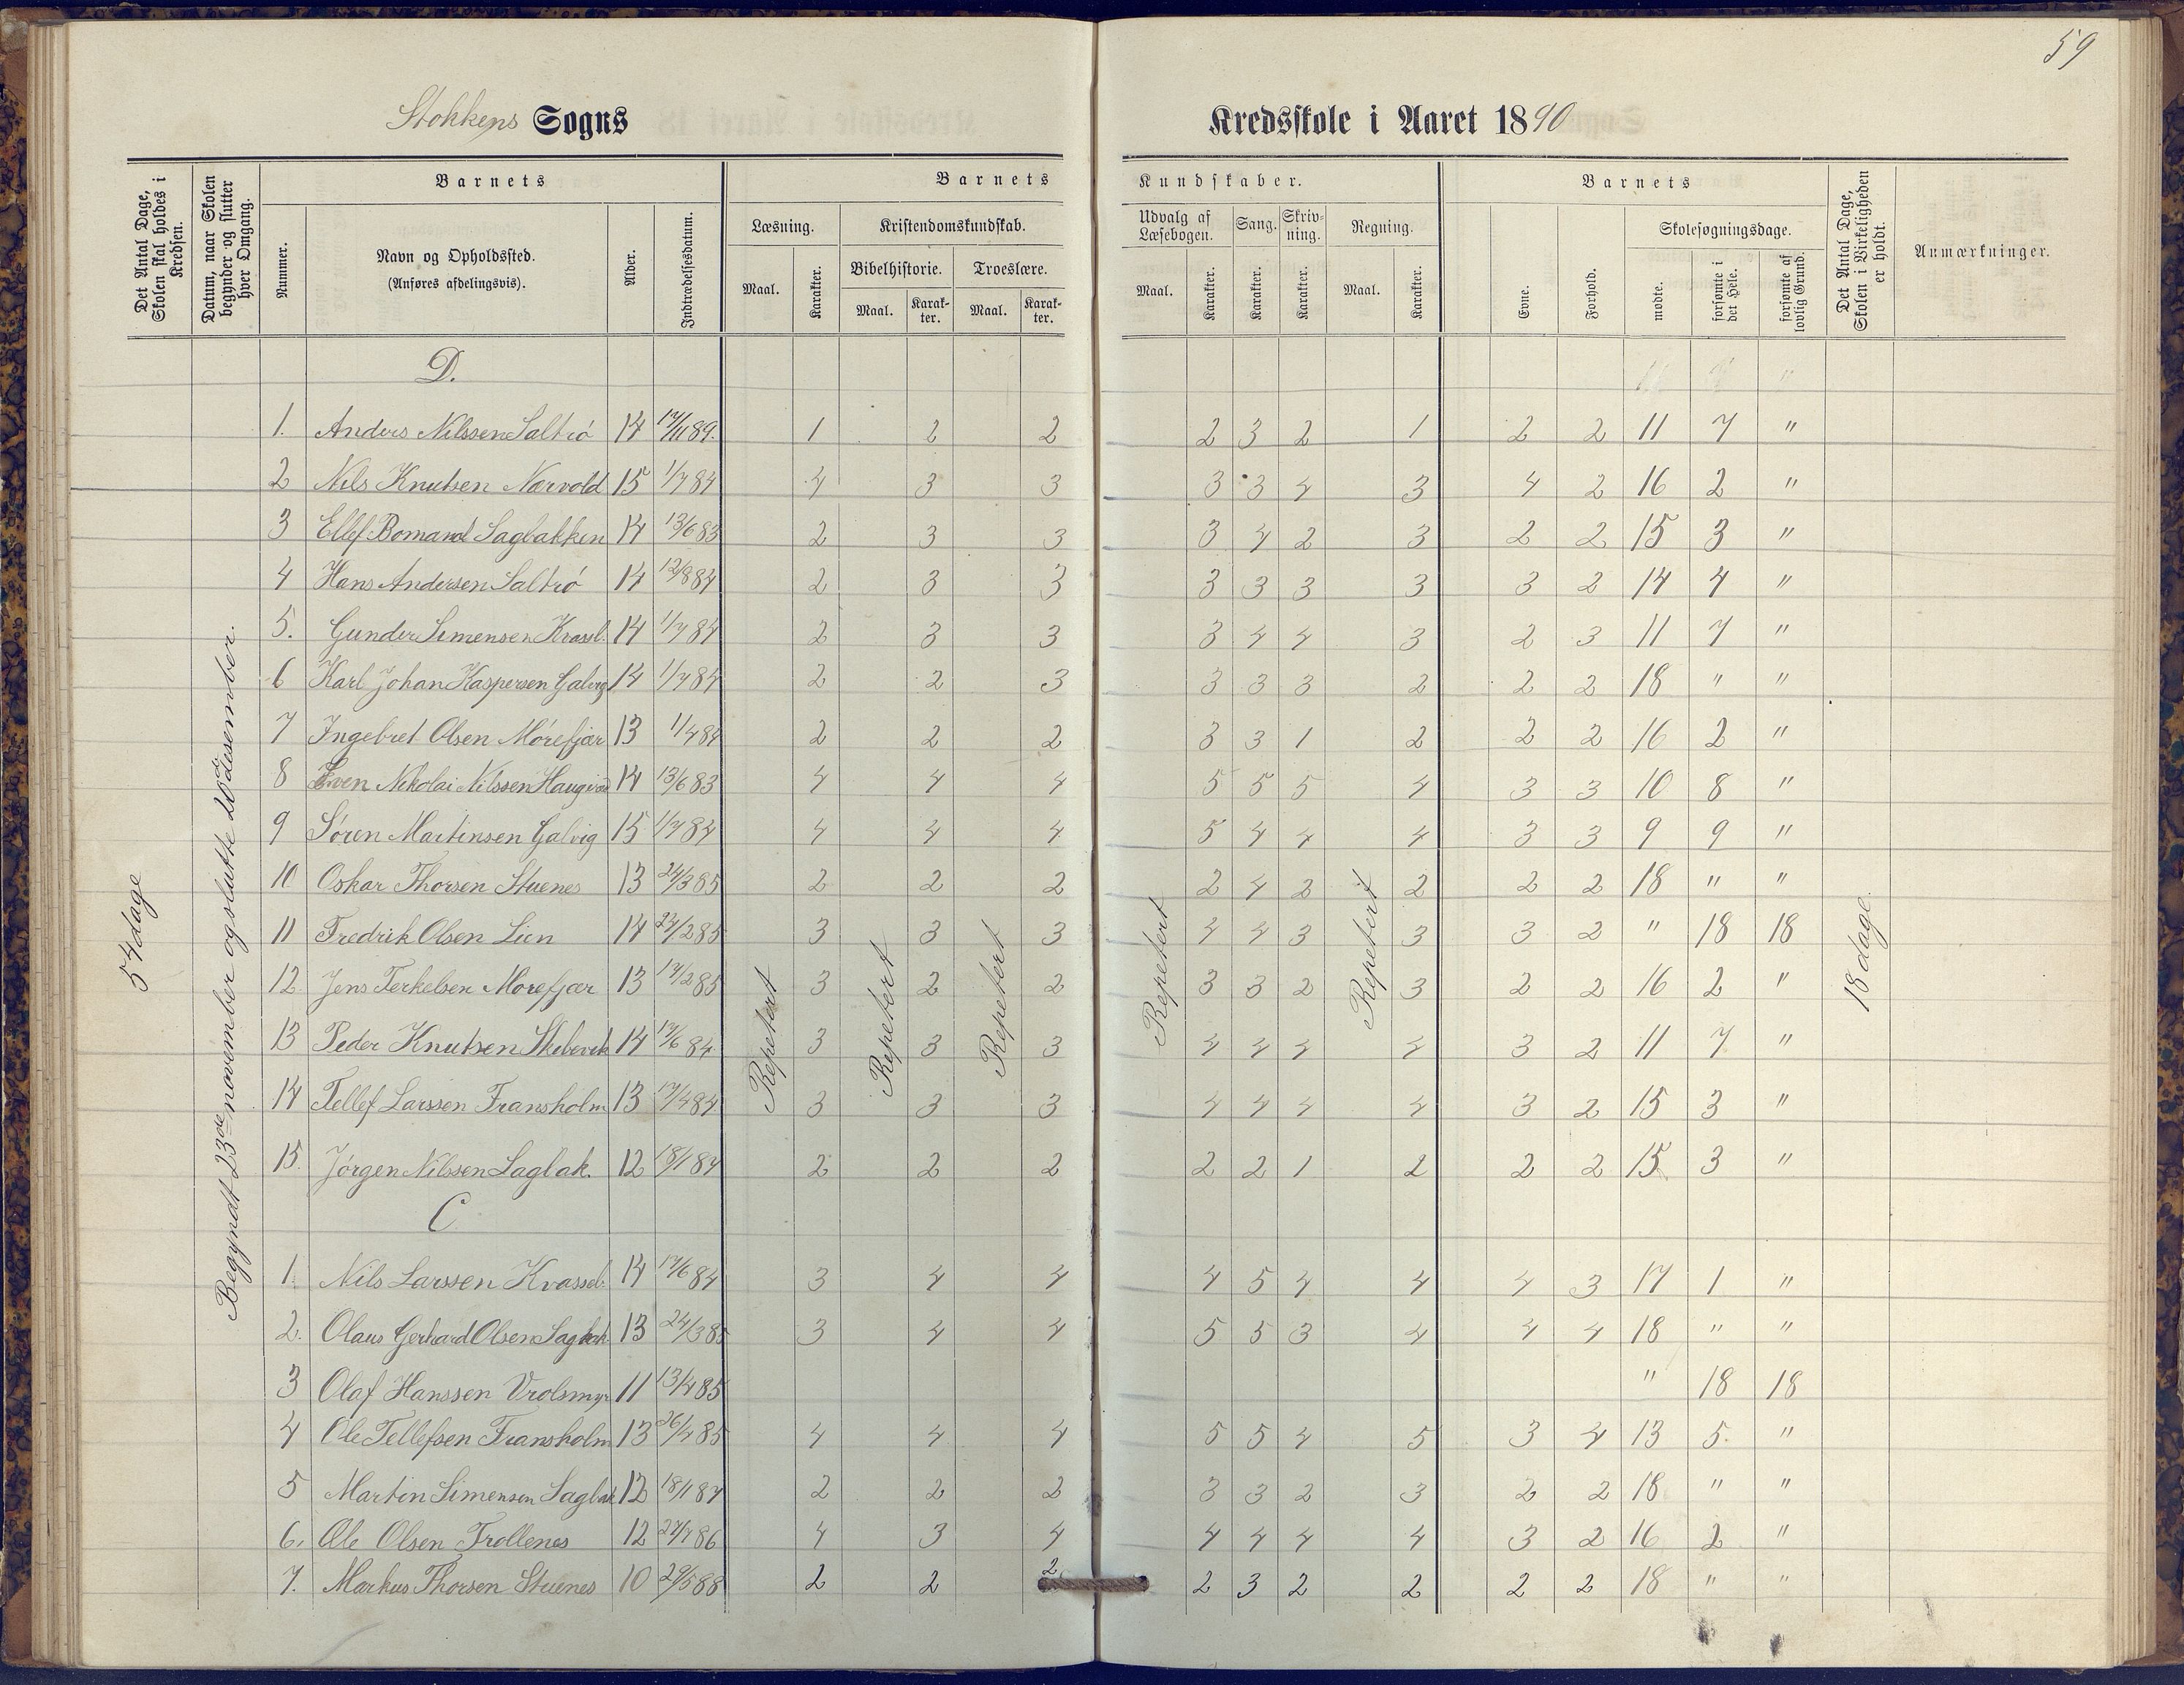 59
Stokkens Sogns Kredsskole i Aaret 1890
Det Antal Dage, Skolen skal holdes i Kredsen.
Datum, naar Skolen begynder og slutter hver Omgang.
Barnets
Nummer.
Navn og Opholdssted.
(Anføres afdelingsvis).
Alder.
Indtrædelsesdatum.
Barnets Kundskaber.
Læsning.
Maal. Karakter.
Kristendomskundskab.
Bibelhistorie. Troeslære.
Maal. Karakter. Maal. Karakter.
Udvalg af Læsebogen. Sang. Skrivning. Regning.
Maal. Karakter. Karakter. Karakter. Maal. Karakter.
Barnets
Evne. Forhold.
Skolesøgningsdage.
mødte. forsømte i det Hele. forsømte af lovlig Grund.
Det Antal Dage, Skolen i Virkeligheden er holdt.
Anmærkninger.
54 dage
Begyndt 23de november og slutte 20de desember.
Repetert Repetert Repetert Repetert Repetert
18 dage
D.
1. Anders Nilssen Saltrö 14 17/11 89. 1 2 2 2 3 2 1 2 2 11 7 "
2 Nils Knutsen Nærvold 15 1/7 84 4 3 3 3 3 4 3 4 2 16 2 "
3 Ellef Bomand Sagbakken 14 13/6 83 2 3 3 3 4 2 3 2 2 15 3 "
4 Hans Andersen Saltrö 14 12/8 84 2 3 3 3 3 3 3 3 2 14 4 "
5. Gunder Simensen Krassl. 14 1/7 84 2 3 3 3 4 4 3 2 3 11 7 "
6 Karl Johan Kaspersen Galvig 14 1/7 84 2 2 3 3 3 3 2 2 2 18 " "
7 Ingebret Olsen Mörefjær 13 1/4 84 2 2 2 3 3 1 2 2 2 16 2 "
8 Sven Nikolai Nilssen 14 13/6 83 4 4 4 5 5 5 4 3 3 10 8 "
9 Sören Martinsen Galvig 15 1/7 84 4 4 4 5 4 4 4 3 3 9 9 "
10 Oskar Thorsen Stuenes 13 24/3 85 2 2 2 2 4 2 2 2 2 18 " "
11 Fredrik Olsen Lien 14 24/2 85 3 3 3 4 4 3 3 3 2 " 18 18
12. Jens Terkelsen Mörefjær 13 17/2 85 3 2 2 3 3 2 3 2 2 16 2 "
13 Peder Knutsen Skibevik 14 17/6 84 3 3 3 4 4 4 4 3 2 11 7 "
14 Tellef Larssen Fransholm 13 17/4 84 3 3 3 4 4 4 4 3 2 15 3 "
15. Jörgen Nilssen Sagbak. 12 18/1 87 2 2 2 2 2 1 2 2 2 15 3 "
C
1. Nils Larssen Kvassel. 14 17/6 84 3 4 4 4 5 4 4 4 3 17 1 "
2. Olaus Gerhard Olsen Sagbak 13 24/3 85 3 4 4 5 5 3 4 4 4 18 " "
3 Olaf Hanssen Vrolsmyr 11 13/4 85 " 18 18
4 Ole Tellefsen Fransholm 13 26/4 85 4 4 4 5 5 4 5 3 4 13 5. "
5 Martin Simensen Sagbak 12 18/1 87 2 2 2 3 3 2 3 2 2 18 " "
6. Ole Olsen Trollenes 12 27/4 86 4 3 4 4 4 4 4 3 2 16 2 "
7. Markus Thorsen Stuenes 10 29/5 88 2 2 2 2 3 2 2 2 2 18 " "